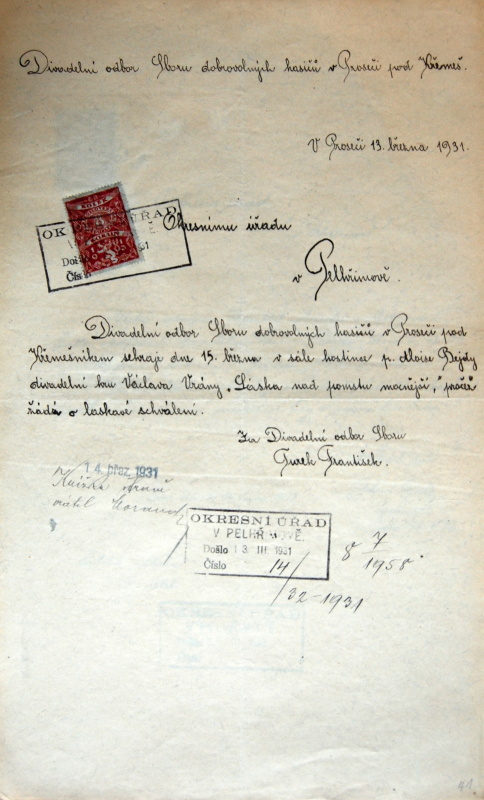 Divadelní odbor Sboru dobrovolných hasičů v Proseči pod Křemeš.
V Proseči 13. března 1931.
KOLEK
OKRESNÍ ÚŘAD
Došlo 1931
Číslo
Okresnímu úřadu
v Pelhřimově.
Divadelní odbor Sboru dobrovolných hasičů v Proseči pod
Křemešníkem sehraje dne 15. března v sále hostince p. Aloise Bejdy
divadelní hru Václava Vrány „Láska nad pomstu mocnější", pročež
žádá o laskavé schválení.
Za Divadelní odbor Sboru
Turek František.
14. břez. 1931
vrátil
OKRESNÍ ÚŘAD
V PELHŘIMOVĚ.
Došlo 13 III 1931
Číslo 14/
/32-1931
8 7
1958
41